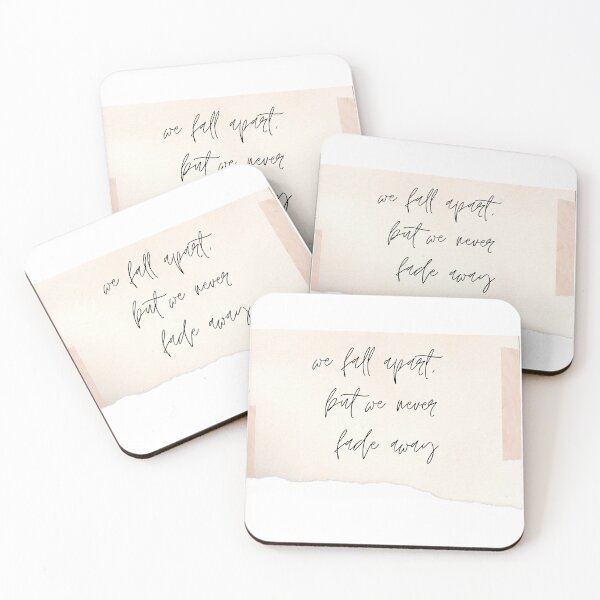 we fall apart,
but we never
we fall apart,
but we never
fade away
we fall apart,
but we never
fade away
we fall apart,
but we never
fade away